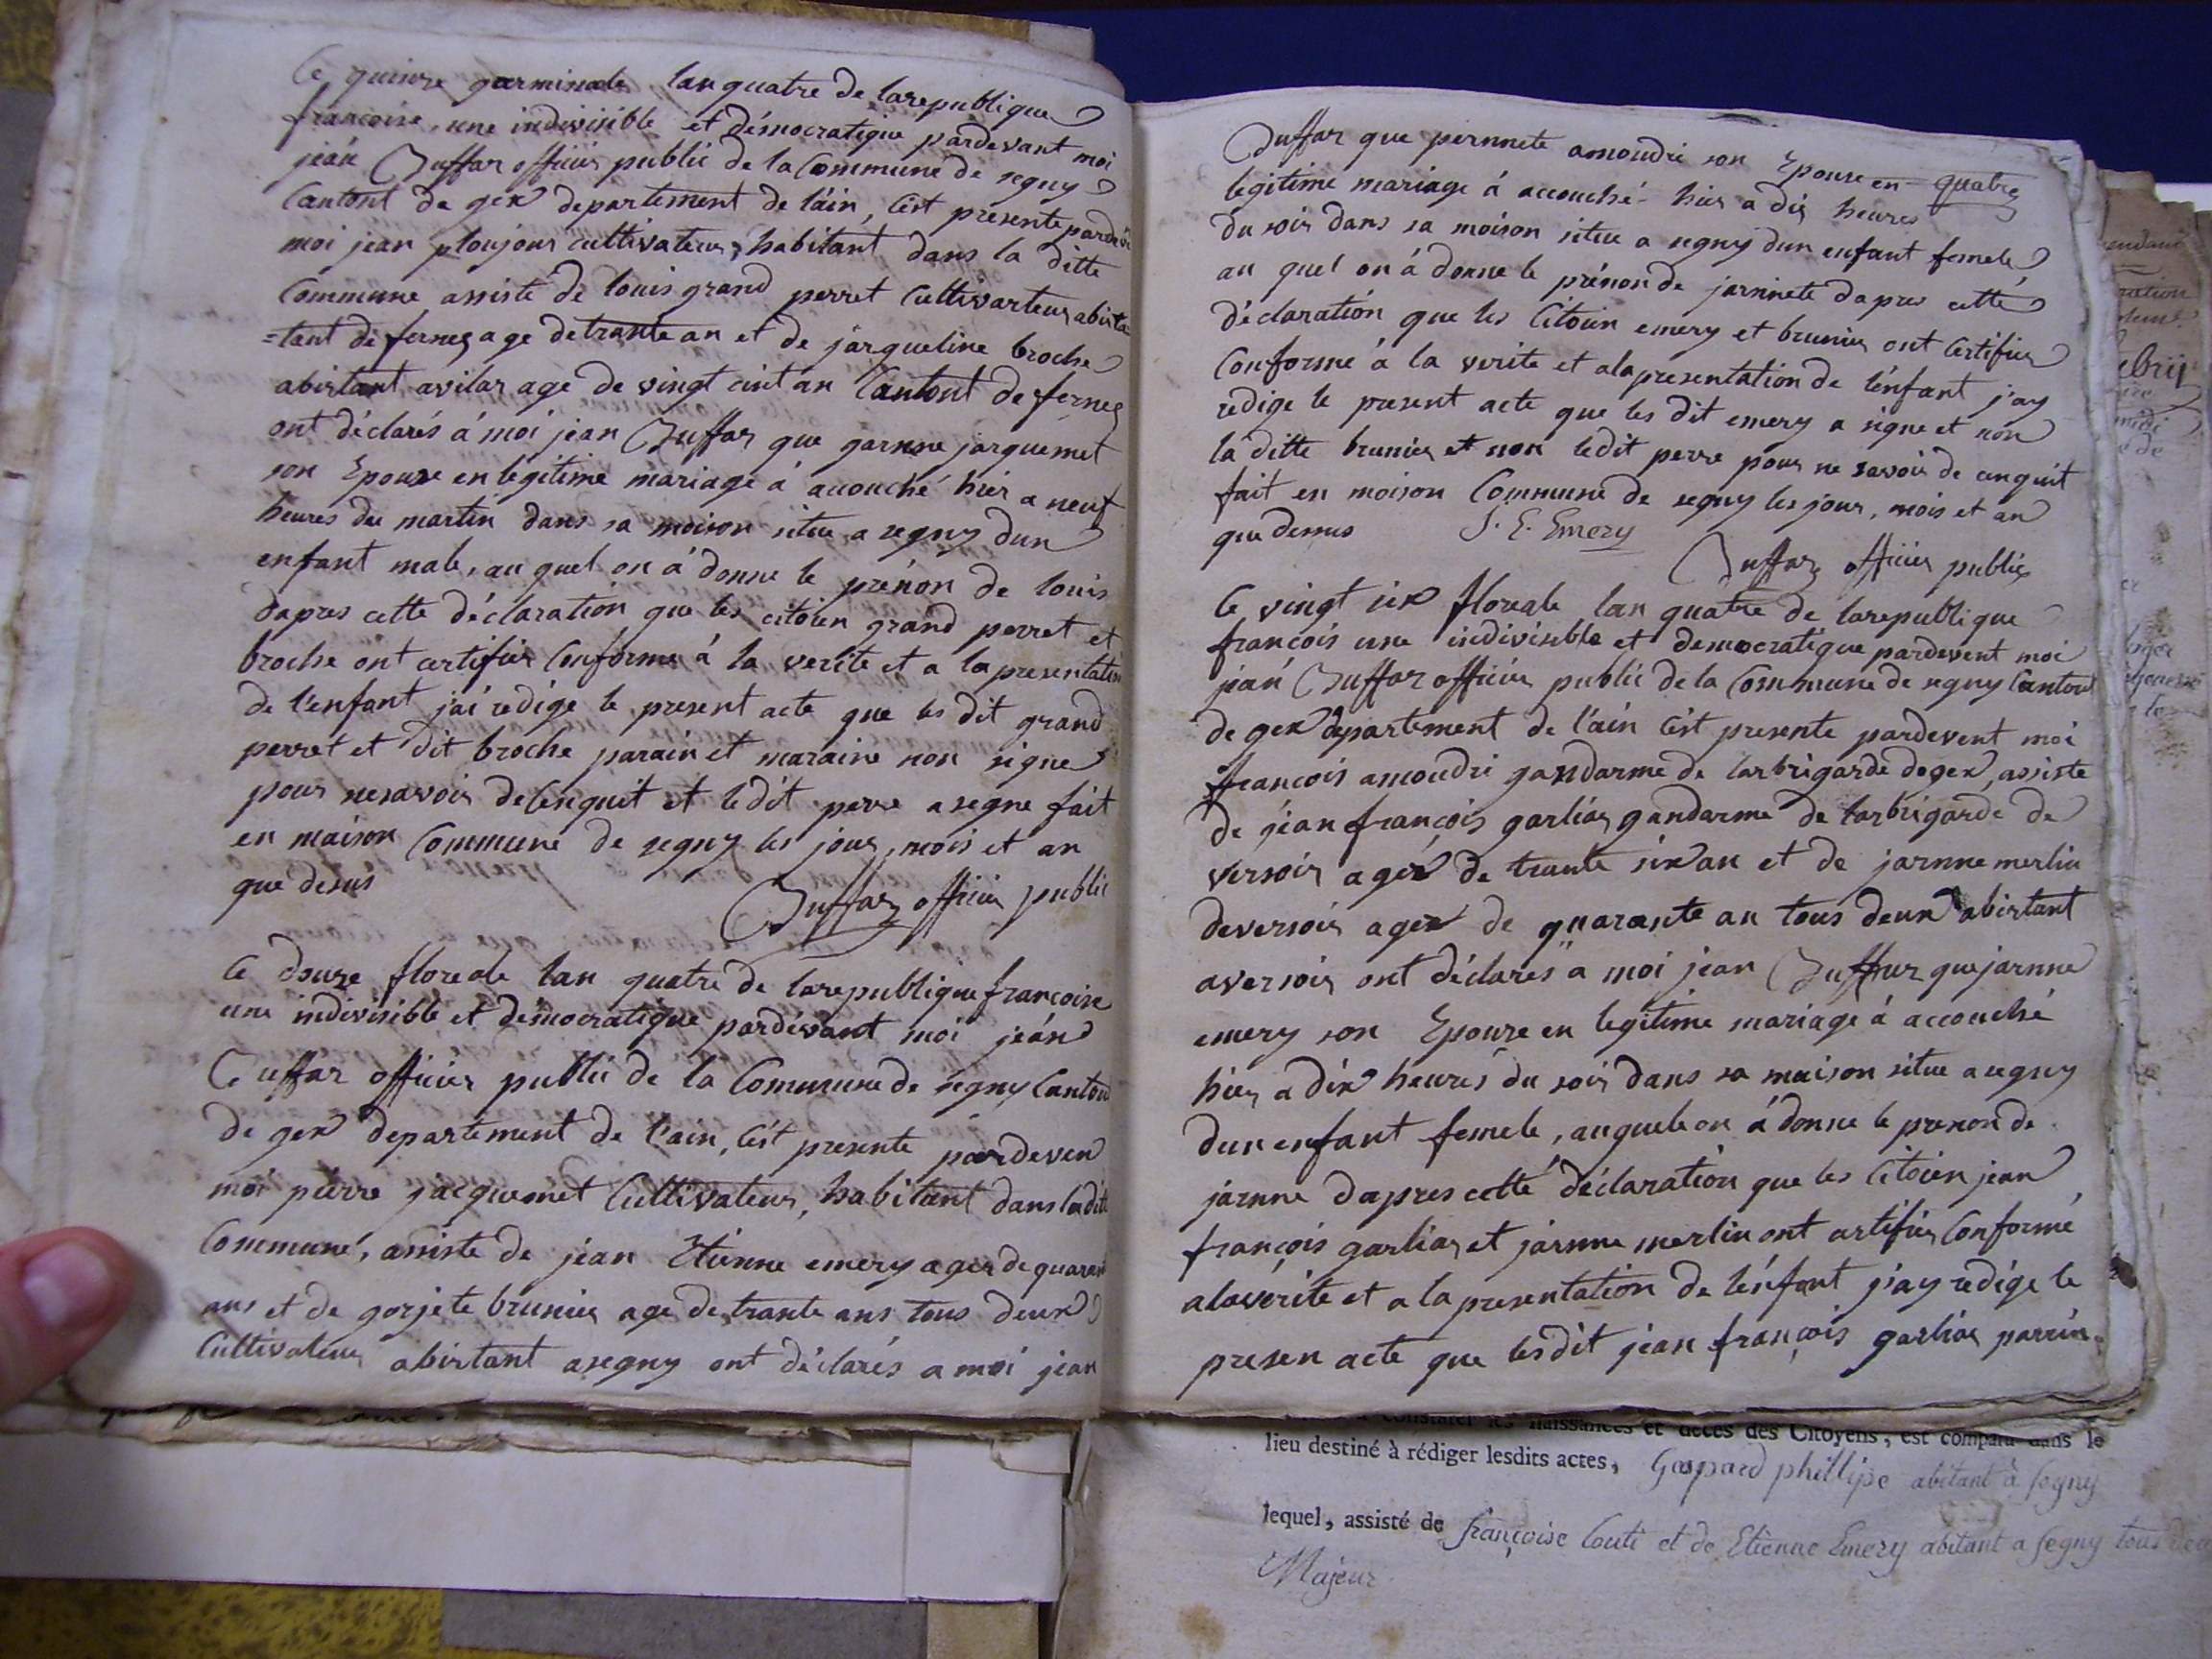 Ce quinze germinale lan quatre de larepublique
francoise, une indivisible et démocratique pardevant moi
jean Duffar officier public de la Commune de segny
Cantont de gex departement de láin, cést presente pardev
moi jean ploujour cultivateur, habitant dans la ditte
Commune assisté de louis grand perret Cultivarteur abista
=tant de ferneg age detrante an et de jarqueline broche
abistant avilar age de vingt cint an Cantont de ferneg
ont déclarés á moi jean Duffar que garnne jarquemet
son Epouze en legitime mariage á acouché hier a neuf
heures du martin dans sa moison situe a segny dun
enfant male, au quel on á donne le prénon de louis
dapres cette déclaration que les citoien grand perret et
broche ont certifier Conforme á la verite et a la presentation
de l'enfant jai redige le present acte que les dit grand
perret et dit broche parain et maraine non signe
pour nesavoir delenquit et ledit perre a segne fait
en maison Commune de segny les jour, mois et an
que desus
Duffar officier public
Ce douze floreale lan quatre de larepublique francoise
une indivisible et démocratique pardévant moi jeán
Duffar officier public de la Commune de segny Canton
de gex departement de l'ain, cést presente pardeven
moi pierre jacquemet Cultivateur, habitant dans ladite
Commune, assiste de jean Etienne emery ager de quarant
ans et de gorjete brunier age de trante ans tous deux
Cultivateur abistant asegny ont déclarés a moi jean
Duffar que pernnete amoudri son Epouse en quatre
legitime mariage á accouché hier a dix heures
du soir dans sa moison situe a segny dun enfant femele
au quel on á donne le prénon de jarnnete dapres cette
déclaration que les Citoien emery et brunier ont certifier
Conforme á la verite et ala presentation de lénfant j'ay
redige le present acte que les dit emery a signe et non
la ditte brunier et non ledit perre pour ne savoir de cenquit
fait en moison Commune de segny les jour, mois et an
que dessus
J. E. Emery
Duffar officier public
Ce vingt six floreale lan quatre de larepublique
francois une indivisible et democratique pardevent moi
jean Duffar officier public de la Commune de segny Canton
de gex departement de l'ain cést presente pardevent moi
francois amoudri gandarme de larbrigarde degex, assiste
de jean francois garliar gandarme de larbrigarde de
versoir ager de trante six an et de jarnne merlin
deversoir ager de quarante an tous deux abistant
aversoir ont déclares a moi jean Duffar que jarnne
emery son Epouze en legitime mariage á accouché
hier a dix heures du soir dans sa maison situe a segny
dun enfant femele, auquele on á donne le prenon de
jarnne dapres cette déclaration que les Citoien jean
françois garliar et jarnne merlin ont certifier Conforme
alavérite et a la presentation de lénfant j'ay redige le
presen acte que lesdit jean françois garliar parrin
constater les naissances et décès des Citoyens, est comparu dans le
lieu destiné à rédiger lesdits actes, Gaspard phillipe abitant à segny
lequel, assisté de françoise Couti et de Etienne Emery abitant a segny tous deu
Majeur